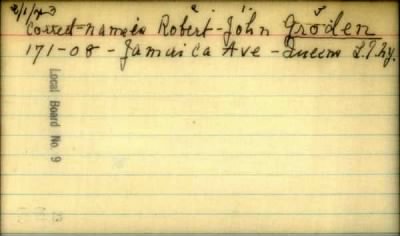 2/1/43
Correct-name is Robert-John Gröden
171-08 - Jamaica Ave - Queens L.I. N.Y.
Local Board No. 9